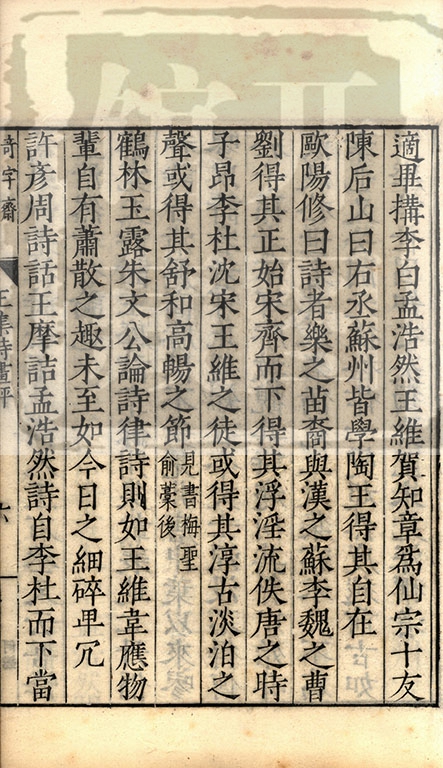 適畢搆李白孟浩然王維賀知章爲仙宗十友
陳后山曰右丞蘇州皆學陶王得其自在
歐陽修曰詩者樂之苗裔與漢之蘇李魏之曹
劉得其正始宋齊而下得其浮淫流佚唐之時
子昂李杜沈宋王維之徒或得其淳古淡泊之
聲或得其舒和高暢之節
見書梅聖
俞藁後
鶴林玉露朱文公論詩律詩則如王維韋應物
輩自有蕭散之趣未至如今日之細碎卑冗
許彥周詩話王摩詰孟浩然詩自李杜而下當
奇字齋
王集詩畫評